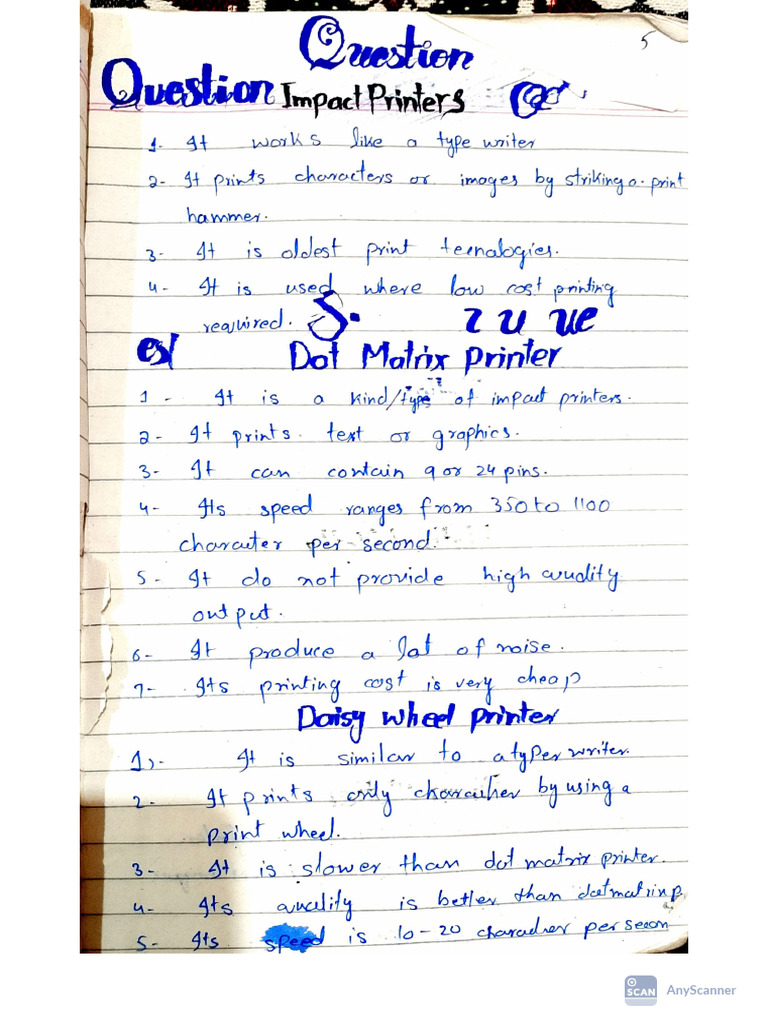 Question
5
Question Impact Printers
1- It works like a type writer
2- It prints characters or images by striking a print
hammer.
3- It is oldest print tecnalogies.
4- It is used where low cost printing
required. S.
Dot Matrix printer
1- It is a kind/type of impact printers.
2- It prints text or graphics.
3- It can contain 9 or 24 pins.
4- Its speed ranges from 350 to 1100
character per second.
5- It do not provide high quality
output.
6- It produce a lat of noise.
7- Its printing cost is very cheap
Daisy wheel printer
1)- It is similar to a typer writer.
2- It prints only character by using a
print wheel.
3- It is slower than dot matrix printer.
4- Its quality is better than dot matrix p.
5- Its speed is 10-20 character per secon
SCAN AnyScanner